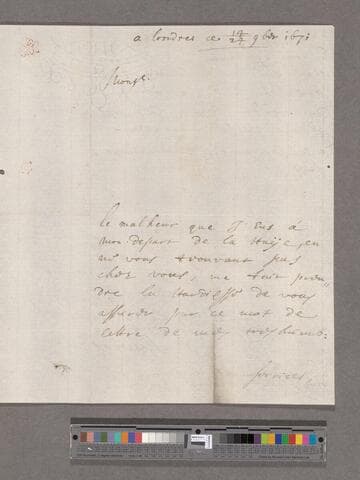 a Londres ce 17/27 9bre 1671
Monsr.
le malheur que J'Eus á
mon depart de la Haije, en
ne vous trouvant pas
chez vous, me fait pren„
dre la Hardiesse de vous
assurer par ce mot de
lettre de mes treshumb:
services,